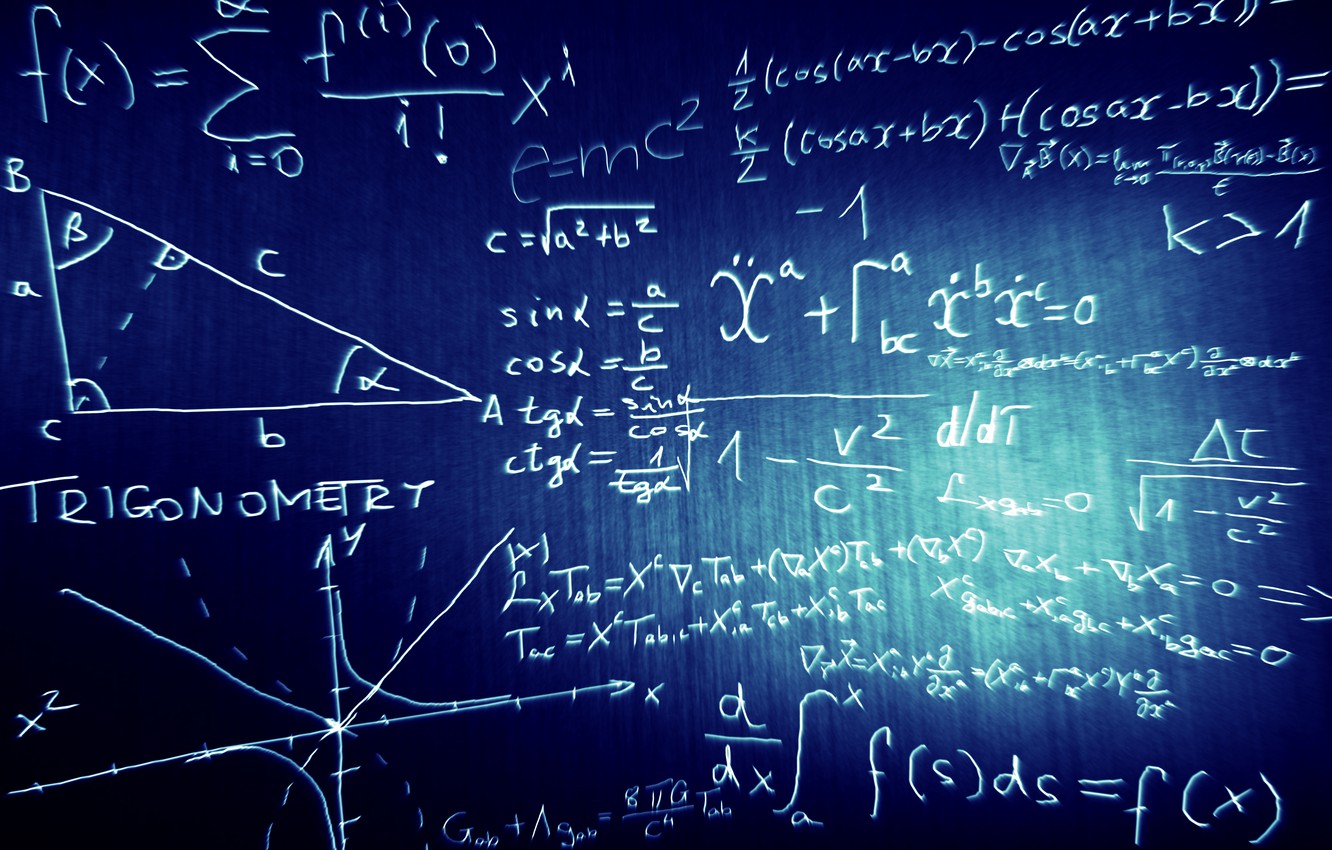 f(x) = ∑ᵢ₌₀^∝ f⁽ⁱ⁾(0)/i! xⁱ
e=mc²
½(cos(ax-bx)-cos(ax+bx))=
k/2 (cosax+bx)+(cosax-bx))=
k>1
-1
B
β
a
c
α
C
b
A
c=√(a²+b²)
sinα = a/c
cosα = b/c
tgα = sinα/cosα
ctgα = 1/tgα
ẍᵃ + Γᵃ_bc ẋᵇẋᶜ=0
√(1 - v²/c²)
d/dT
ℒ_x g_ab=0
Δt/√(1 - v²/c²)
TRIGONOMETRY
y
|x|
x
x²
ℒ_X T_ab=Xᶜ∇_cT_ab+(∇_aXᶜ)T_cb+(∇_bXᶜ)
T_ac=XᶜT_ab,c+Xᶜ,aT_cb+Xᶜ,bT_ac
∇_aX_b+∇_bX_a=0 ⟹
Xᶜg_ab,c+Xᶜ,ag_bc+Xᶜ,bg_ac=0
d/dx ∫ₐˣ f(s)ds=f(x)
G_ab+Λg_ab=8πG/c⁴ T_ab